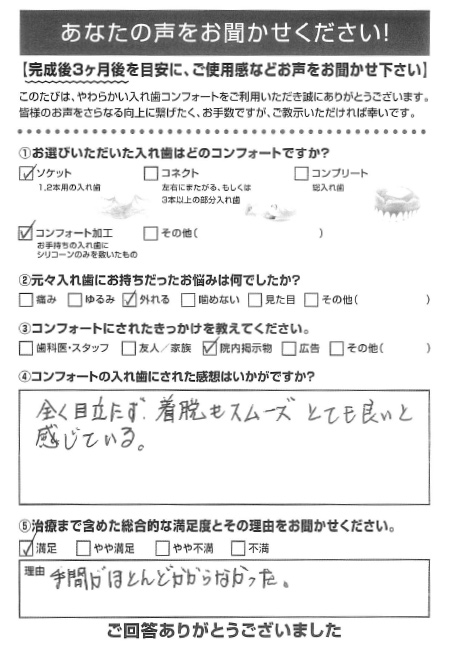 あなたの声をお聞かせください!
【完成後3ヶ月後を目安に、ご使用感などお声をお聞かせ下さい】
このたびは、やわらかい入れ歯コンフォートをご利用いただき誠にありがとうございます。
皆様のお声をさらなる向上に繋げたく、お手数ですが、ご教示いただければ幸いです。
①お選びいただいた入れ歯はどのコンフォートですか?
☑ソケット □コネクト □コンプリート
1,2本用の入れ歯 左右にまたがる、もしくは 総入れ歯
3本以上の部分入れ歯
☑コンフォート加工 □その他( )
お手持ちの入れ歯に
シリコーンのみを敷いたもの
②元々入れ歯にお持ちだったお悩みは何でしたか?
□痛み □ゆるみ ☑外れる □噛めない □見た目 □その他( )
③コンフォートにされたきっかけを教えてください。
□歯科医・スタッフ □友人/家族 ☑院内掲示物 □広告 □その他( )
④コンフォートの入れ歯にされた感想はいかがですか?
全く目立たず、着脱もスムーズ とても良いと
感じている。
⑤治療まで含めた総合的な満足度とその理由をお聞かせください。
☑満足 □やや満足 □やや不満 □不満
理由 手間がほとんどかからなかった。
ご回答ありがとうございました